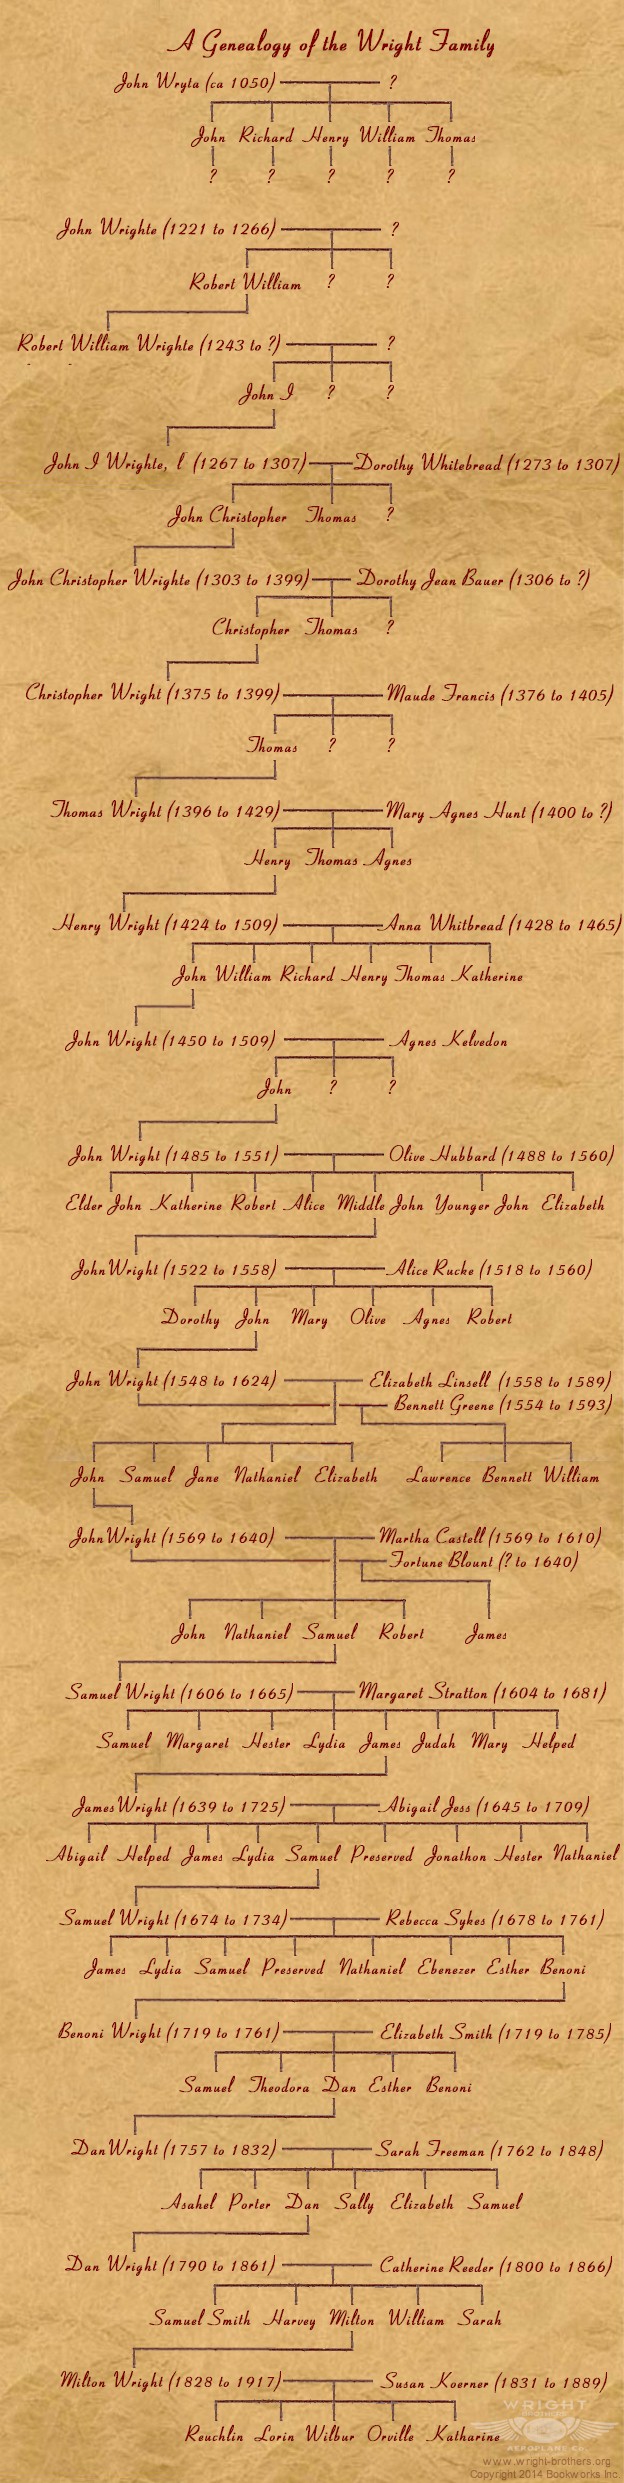 A Genealogy of the Wright Family
John Wryta (ca 1050) ?
John Richard Henry William Thomas
? ? ? ? ?
John Wrighte (1221 to 1266) ?
Robert William ? ?
Robert William Wrighte (1243 to ?) ?
John I ? ?
John I Wrighte, l (1267 to 1307) Dorothy Whitebread (1273 to 1307)
John Christopher Thomas ?
John Christopher Wrighte (1303 to 1399) Dorothy Jean Bauer (1306 to ?)
Christopher Thomas ?
Christopher Wright (1375 to 1399) Maude Francis (1376 to 1405)
Thomas ? ?
Thomas Wright (1396 to 1429) Mary Agnes Hunt (1400 to ?)
Henry Thomas Agnes
Henry Wright (1424 to 1509) Anna Whitbread (1428 to 1465)
John William Richard Henry Thomas Katherine
John Wright (1450 to 1509) Agnes Kelvedon
John ? ?
John Wright (1485 to 1551) Olive Hubbard (1488 to 1560)
Elder John Katherine Robert Alice Middle John Younger John Elizabeth
John Wright (1522 to 1558) Alice Rucke (1518 to 1560)
Dorothy John Mary Olive Agnes Robert
John Wright (1548 to 1624) Elizabeth Linsell (1558 to 1589)
Bennett Greene (1554 to 1593)
John Samuel Jane Nathaniel Elizabeth Lawrence Bennett William
John Wright (1569 to 1640) Martha Castell (1569 to 1610)
Fortune Blount (? to 1640)
John Nathaniel Samuel Robert James
Samuel Wright (1606 to 1665) Margaret Stratton (1604 to 1681)
Samuel Margaret Hester Lydia James Judah Mary Helped
James Wright (1639 to 1725) Abigail Jess (1645 to 1709)
Abigail Helped James Lydia Samuel Preserved Jonathon Hester Nathaniel
Samuel Wright (1674 to 1734) Rebecca Sykes (1678 to 1761)
James Lydia Samuel Preserved Nathaniel Ebenezer Esther Benoni
Benoni Wright (1719 to 1761) Elizabeth Smith (1719 to 1785)
Samuel Theodora Dan Esther Benoni
Dan Wright (1757 to 1832) Sarah Freeman (1762 to 1848)
Asahel Porter Dan Sally Elizabeth Samuel
Dan Wright (1790 to 1861) Catherine Reeder (1800 to 1866)
Samuel Smith Harvey Milton William Sarah
Milton Wright (1828 to 1917) Susan Koerner (1831 to 1889)
Reuchlin Lorin Wilbur Orville Katharine
WRIGHT
BROTHERS
AEROPLANE CO.
www.wright-brothers.org
Copyright 2014 Bookworks Inc.